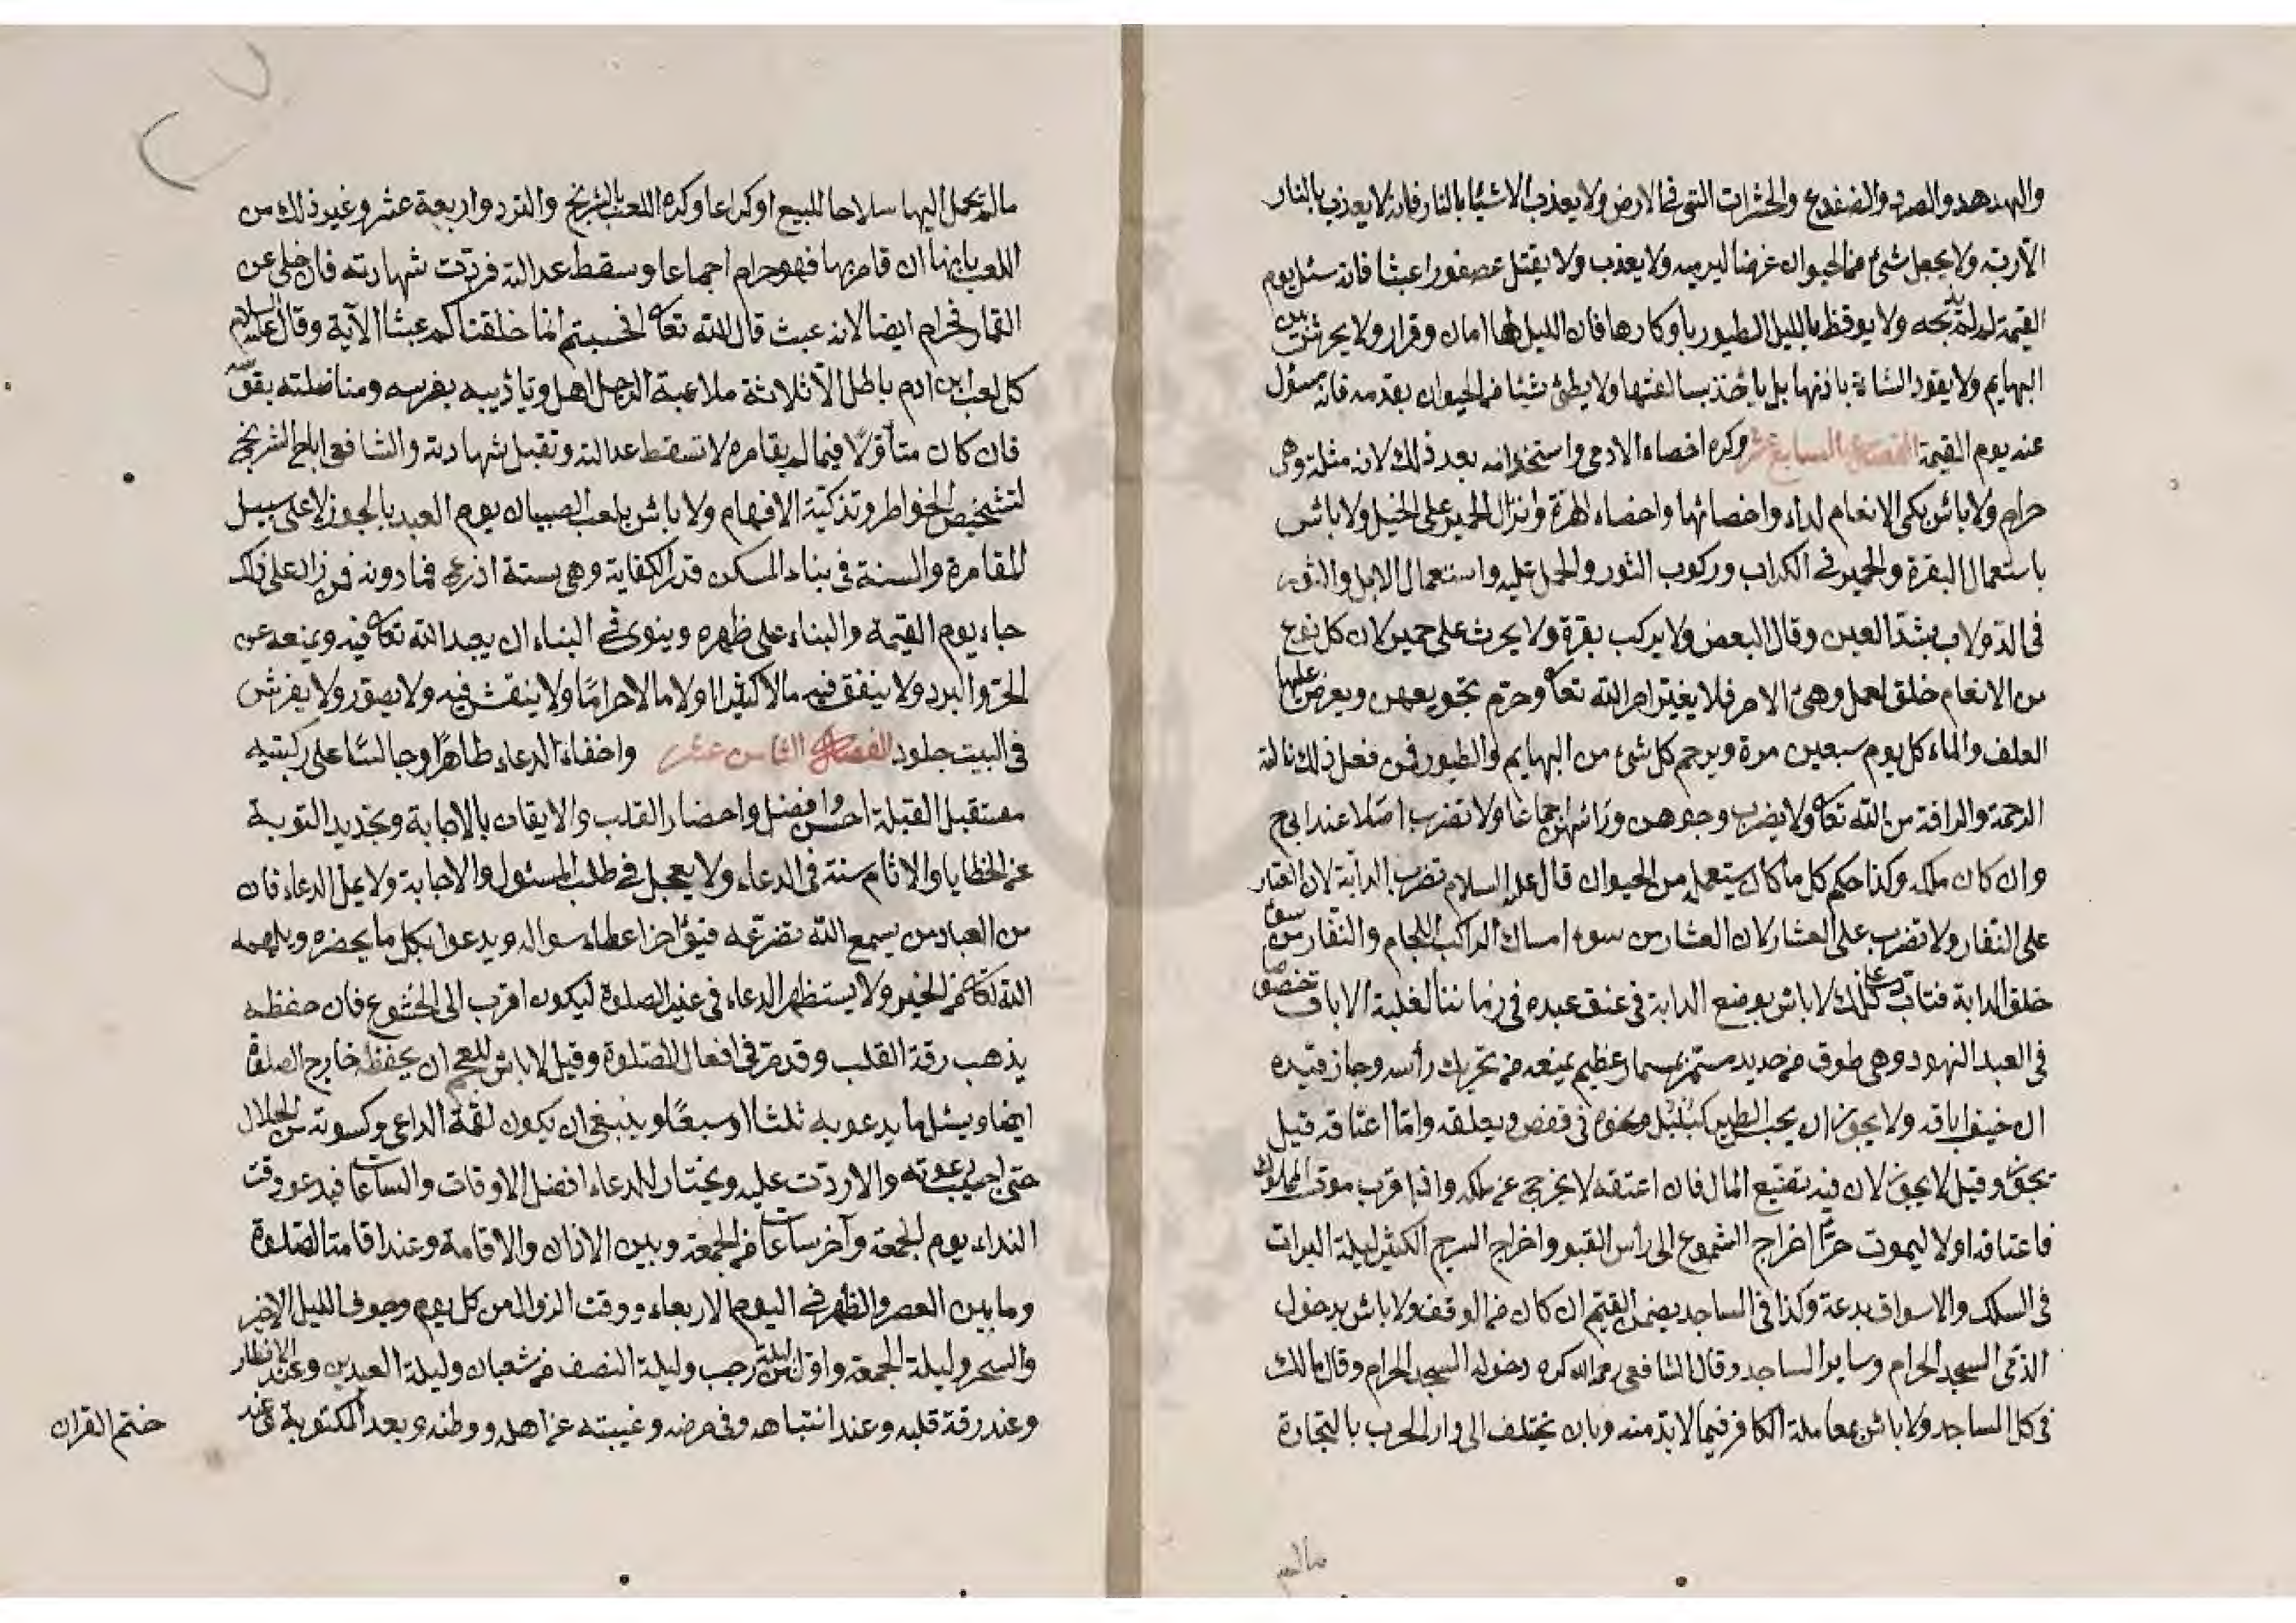 والهدهد والصرد والضفدع والحشرات التي في الارض ولا يعذب الاشيا بالنار فانه لا يعذب بالنار
الا ربه ولا يجعل شئ من الحيوان غرضا ليرميه ولا يعذب ولا يقتل عصفورا عبثا فانه سئل يوم
القيمة لم لم تذبحه ولا يوقظ بالليل الطيور باوكارها فان الليل لها امان وقرار ولا يحرش بين
البهايم ولا يقود الشاة باذنها بل ياخذ بسالفتها ولا يطئ شيئا من الحيوان بقدمه فانه مسؤل
عنه يوم القيمة الفصل السابع عشر وكره اخصاء الادمي واستخدامه بعد ذلك لانه مثلة وهي
حرام ولا باس بكي الانعام لداء واخصائها واخصاء الهرة وانزال الحمير على الخيل ولا باس
باستعمال البقرة والحمير في الكراب وركوب الثور والحمل عليه واستعمال الابل والثور
في الدولاب بشد العين وقال البعض ولا يركب بقرة ولا يحرث على حمير لان كل نوع
من الانعام خلق لعمل وهيئ الامر فلا يغير امر الله تعا وحرم تجويعهن ويعرض عليها
العلف والماء كل يوم سبعين مرة ويرحم كل شئ من البهايم والطيور فمن فعل ذلك نالته
الرحمة والرافة من الله تعا ولا يضرب وجوههن ورأسهن اجماعا ولا تضرب اصلا عند ابي ح
وان كان ملكه وكذا حكم كل ما كان يستعمل من الحيوان قال عليه السلام تضرب الدابة
على النفار ولا تضرب على العثار لان العثار من سوء امساك الراكب اللجام والنفار من سوء
خلق الدابة فتاب على ذلك لا باس بوضع الداية في عنق عبده في زماننا لغلبة الاباق خصوصا
في العبد الهنود وهي طوق من حديد مستمر بمسمار عظيم يمنعه من تحريك رأسه وجاز قيده
ان خيف اباقه ولا يجوز ان يحبس الطير كبلبل ونحوه في قفص ويعلقه واما اعتاقه قيل
يجوز وقيل لا يجوز لان فيه تضييع المال فان اعتقه لا يخرج عن ملكه واذا قرب موت المملوك
فاعتاقه اولا ليموت حرا اخراج الشموع الى رأس القبور واخراج السرج الكثير ليلة البرات
في السكك والاسواق بدعة وكذا في المساجد يضمن القيم ان كان من الوقف ولا باس بدخول
الذمي المسجد الحرام وساير المساجد وقال الشافعي رحمه الله كره دخوله المسجد الحرام وقال مالك
في كل المساجد ولا باس بمعاملة الكافر فيما لا بد منه وبان يختلف الى دار الحرب بالتجارة
ما لم يحمل اليها سلاحا للبيع او كراعا وكره اللعب بالشطرنج والنرد واربعة عشر وغير ذلك من
اللعب بانها ان قامر بها فهو حرام اجماعا وسقط عدالته فردت شهادته فان خلى عن
القمار فحرام ايضا لانه عبث قال الله تعا افحسبتم انما خلقناكم عبثا الآية وقال عليه السلام
كل لعب ابن ادم باطل الا ثلاثة ملاعبة الرجل اهله وتأديبه بفرسه ومناضلته بقوسه
فان كان متأولا فيما لم يقامره لا تسقط عدالته وتقبل شهادته والشافعي اباح الشطرنج
لتشحيض الخواطر وتذكية الافهام ولا باس بلعب الصبيان يوم العيد بالجوز لا على سبيل
المقامرة والسنة في بناء المسكن قدر الكفاية وهي ستة اذرع فما دونه فمن زاد على ذلك
جاء يوم القيمة والبناء على ظهره وينوى في البناء ان يعبد الله تعا فيه ويمنعه عن
الحر والبرد ولا ينفق فيه مالا كثيرا ولا مالا حراما ولا ينقش فيه ولا يصور ولا يفرش
في البيت جلود الفصل الثامن عشر واخفاء الدعاء طاهرا وجالسا على ركبتيه
مستقبل القبلة احسن وافضل واحضار القلب والايقان بالاجابة وتجديد التوبة
عن الخطايا والاثام سنة في الدعاء ولا يعجل في طلب المسئول والاجابة ولا يمل الدعاء فان
من العباد من يسمع الله تضرعه فيؤاخر اعطاء سواله ويدعوا بكل ما يحضره ويلهمه
الله تعا من الخير ولا يستظهر الدعاء في غير الصلوة ليكون اقرب الى الخشوع فان حفظه
يذهب رقة القلب وقد مر في افعال الصلوة وقيل لا باس للعجم ان يحفظه خارج الصلوة
ايضا ويسئل ما يدعو به ثلثا او سبعا وينبغي ان يكون لقمة الداعي وكسوته من الحلال
حتى اجيب دعوته والا ردت عليه ويختار للدعاء افضل الاوقات والساعات فيدعو وقت
النداء يوم الجمعة وآخر ساعات من الجمعة وبين الاذان والاقامة وعند اقامت الصلوة
وما بين العصر والظهر في اليوم الاربعاء ووقت الزوال من كل يوم وجوف الليل الاخير
والسحر وليلة الجمعة واول ليلة من رجب وليلة النصف من شعبان وليلة العيدين وعند الافطار
وعند رقة قلبه وعند انتباهه وفي مرضه وغيبته عن اهله ووطنه وبعد المكتوبة وعند
ختم القران
ما لم
٢٧